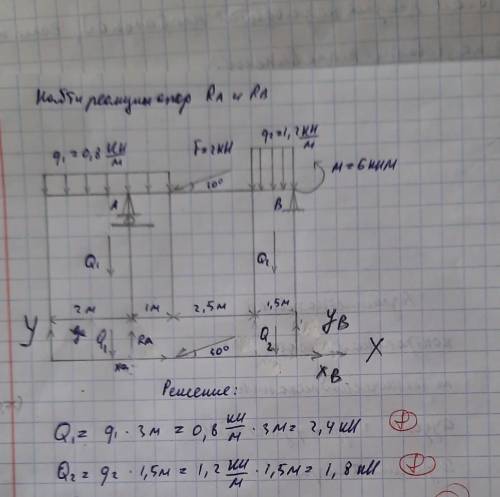 Найти реакции опор RA и RA
q₁=0,8 кН/м
F=2кН
q₂=1,2 кН/м
30°
M=6кНм
A
B
Q₁
Q₂
2м
1м
2,5м
1,5м
y
yB
Q₁
RA
30°
Q₂
xB
X
Решение:
Q₁= q₁ · 3м = 0,8 кН/м · 3м = 2,4кН
Q₂= q₂ · 1,5м = 1,2 кН/м · 1,5м = 1,8кН